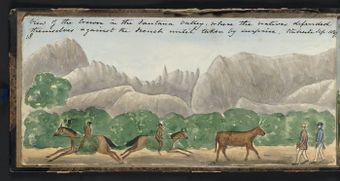 View of the crown in the Fautaua Valley, where the natives defended
themselves against the French until taken by surprise.
18